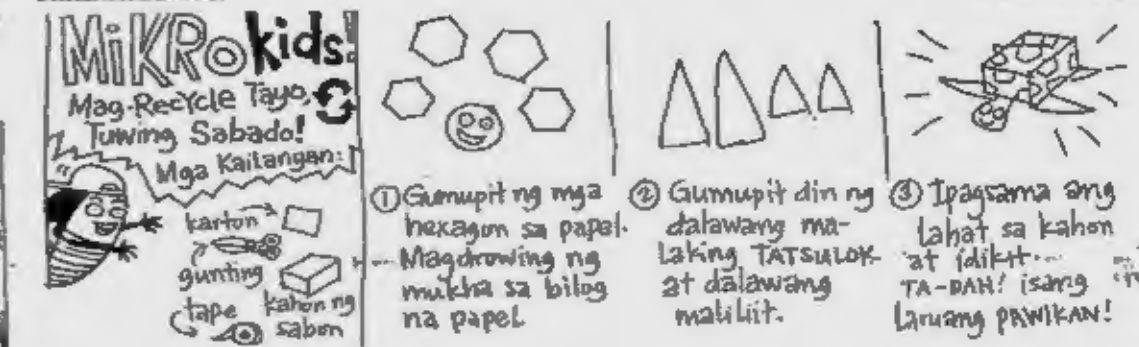 MiKRokids!
Mag-Recycle Tayo,
Tuwing Sabado!
Mga Kaitangan:
karton
gunting
kahon ng
sabon
tape
① Gumupit ng mga
hexagon sa papel.
Magdrowing ng
mukha sa bilog
na papel
② Gumupit din ng
dalawang ma-
laking TATSULOK
at dalawang
maliliit.
③ Ipagsama ang
lahat sa kahon
at idikit...
TA-DAH! isang
laruang PAWIKAN!